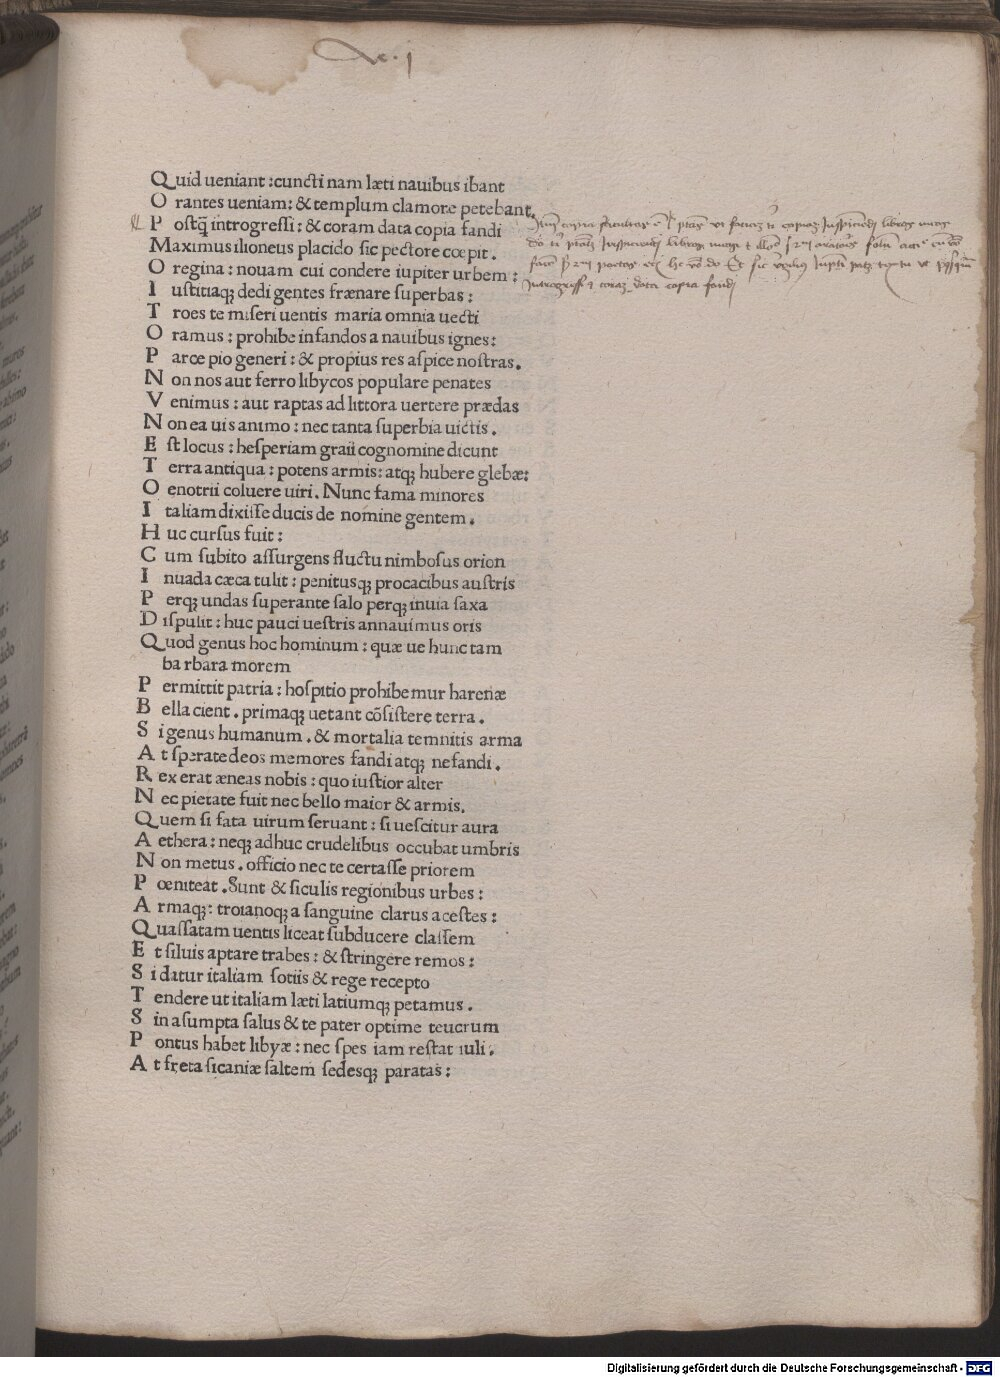 Quid ueniant :cuncti nam læti nauibus ibant
Orantes ueniam: & templum clamore petebant.
Postq̃ introgressi: & coram data copia fandi
Maximus ilioneus placido sic pectore cœpit.
O regina: nouam cui condere iupiter urbem:
Iustitiaqꝫ dedi gentes frænare superbas:
Troes te miseri uentis maria omnia uecti
Oramus: prohibe infandos a nauibus ignes:
Parce pio generi: & propius res aspice nostras.
Non nos aut ferro libycos populare penates
Venimus: aut raptas ad littora uertere prædas
Non ea uis animo: nec tanta superbia uictis.
Est locus: hesperiam graii cognomine dicunt
Terra antiqua: potens armis: atqꝫ hubere glebæ:
Oenotrii coluere uiri. Nunc fama minores
Italiam dixisse ducis de nomine gentem.
Huc cursus fuit:
Cum subito assurgens fluctu nimbosus orion
Inuada cæca tulit: penitusqꝫ procacibus austris
Perqꝫ undas superante salo perqꝫ inuia saxa
Dispulit: huc pauci uestris annauimus oris
Quod genus hoc hominum: quæ ue hunc tam
barbara morem
Permittit patria: hospitio prohibemur harenæ
Bella cient. primaqꝫ uetant cõsistere terra.
Si genus humanum. & mortalia temnitis arma
At sperate deos memores fandi atqꝫ nefandi.
Rex erat æneas nobis: quo iustior alter
Nec pietate fuit nec bello maior & armis.
Quem si fata uirum seruant: si uescitur aura
Aethera: neqꝫ adhuc crudelibus occubat umbris
Non metus. officio nec te certasse priorem
Pœniteat. Sunt & siculis regionibus urbes:
Armaqꝫ: troianoqꝫ a sanguine clarus acestes:
Quassatam uentis liceat subducere classem
Et siluis aptare trabes: & stringere remos:
Si datur italiam sotiis & rege recepto
Tendere ut italiam læti latiumqꝫ petamus.
Sin asumpta salus & te pater optime teucrum
Pontus habet libyæ: nec spes iam restat iuli.
At freta sicaniæ saltem sedesqꝫ paratas:
copia
libros
data copia fandi
Digitalisierung gefördert durch die Deutsche Forschungsgemeinschaft - DFG